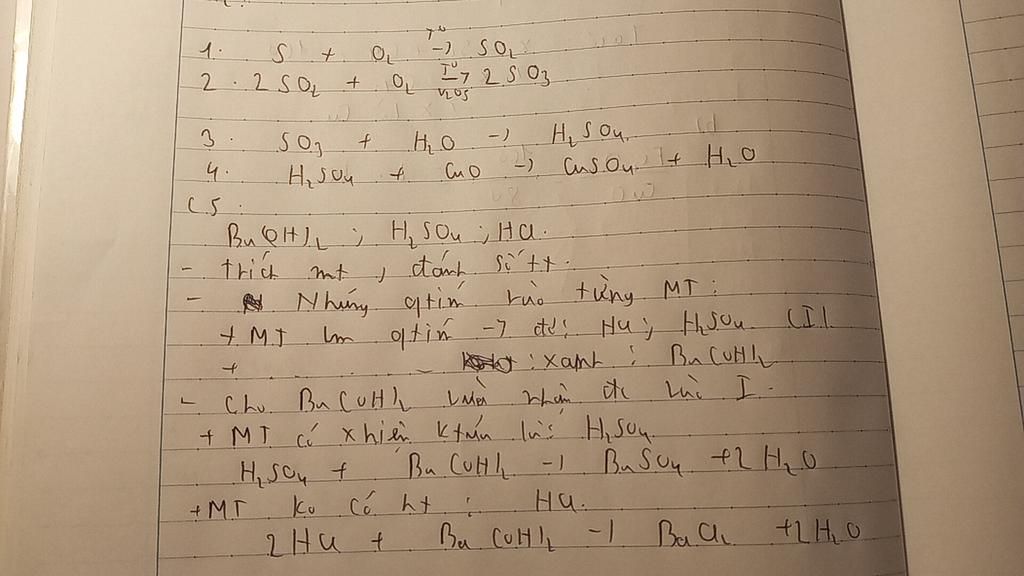 1. S + O2 t° → SO2
2. 2SO2 + O2 t° → V2O5 2SO3
3. SO3 + H2O → H2SO4
4. H2SO4 + CuO → CuSO4 + H2O
C5:
Ba(OH)2 ; H2SO4 ; HCl.
- trích mt, đánh số tt.
- Nhúng qtím vào từng MT:
+ MT lm qtím → đỏ: HCl; H2SO4 (I)
+ _ : xanh : Ba(OH)2
- Cho Ba(OH)2 vừa nhận đc vào I.
+ MT có xhiện ktủa là: H2SO4
H2SO4 + Ba(OH)2 → BaSO4 + 2H2O
+ MT ko có ht : HCl.
2HCl + Ba(OH)2 → BaCl2 + 2H2O